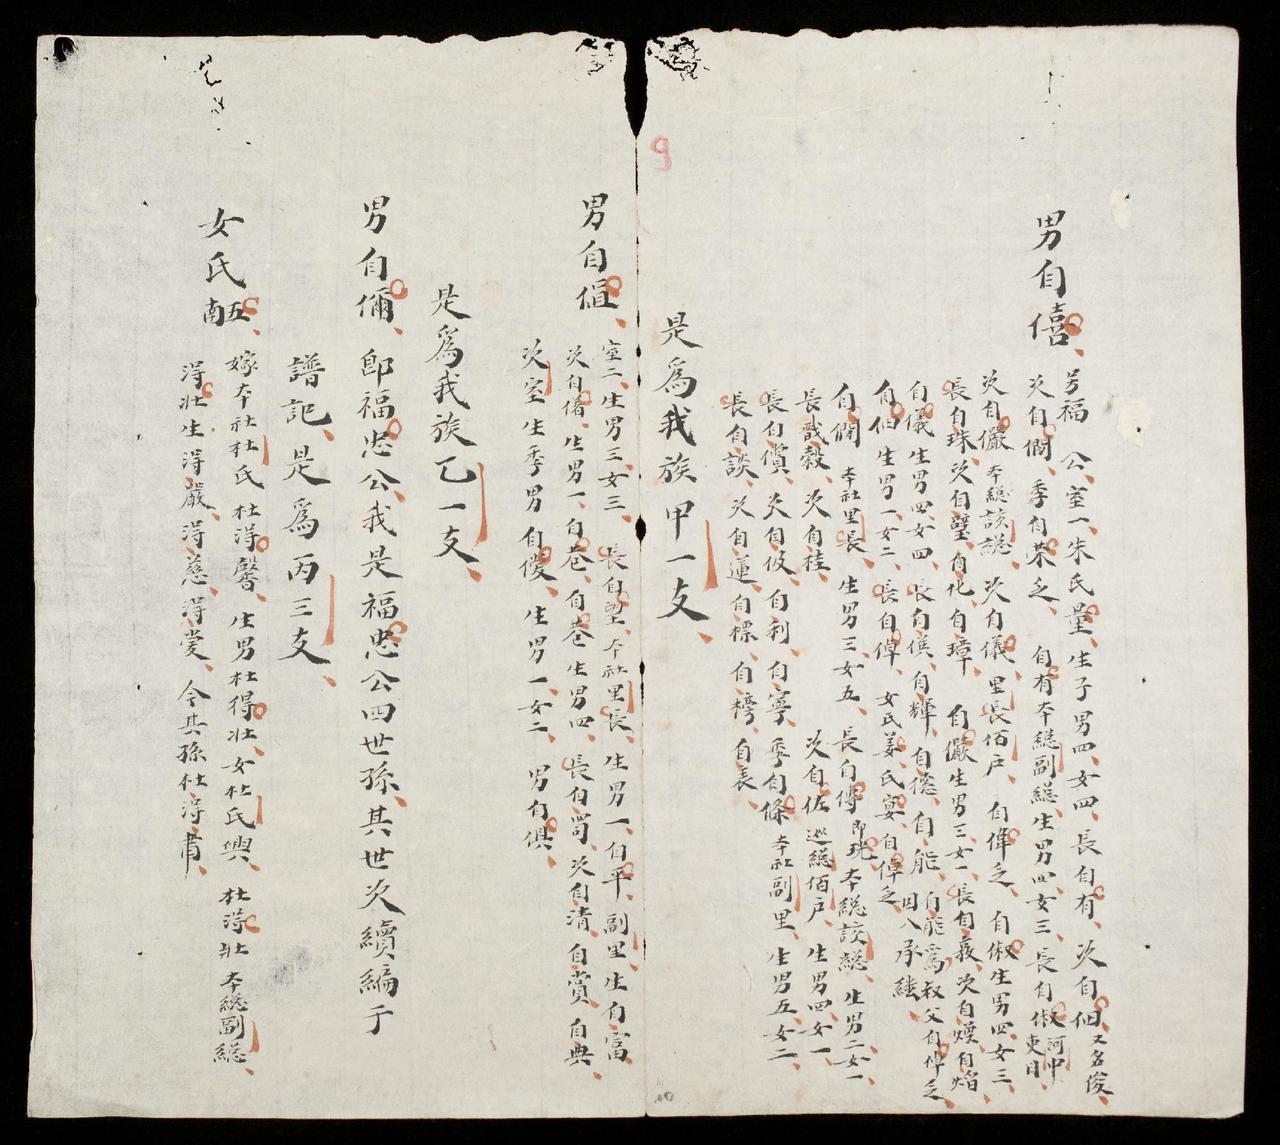 男自僖
号福 公室一朱氏量生子男四女四長自有次自佃又名俊
次自僩季自葇乏 自有本総副総生男四女三長自俶河中吏目
次自儼本総該総次自儀里長佰戶 自偉乏 自俶生男四女三
長自珠次自璧自化自璋 自儼生男三女一長自義次自煙自焰
自儀生男四女四長自僙自輝自德自能自能為叔父自倬乏因入承継
自伯生男一女二長自倬女氏姜氏宴自倬乏
自僩本社里長生男三女五長自傳即珖本総該総生男二女一
長哉穀次自桂 次自佐巡総佰戶生男四女一
長自償次自伇自利自寧季自條本社副里生男五女二
長自談次自蓮自標自樗自表
9
是為我族甲一支
男自偱
室二生男三女三長自望本社里長生男一自平副里生自富
次自偆生男一自苍自苍生男四長自苟次自清自賞自典
次室生季男自儍生男一女二男自俱
是為我族乙一支
男自儞 即福忠公我是福忠公四世孫其世次續編于
譜記是為丙三支
女氏五南
嫁本社杜氏杜得馨生男杜得壯女杜氏興杜得壯本総副総
得壯生得嚴得慈得爱今其孫杜得肅